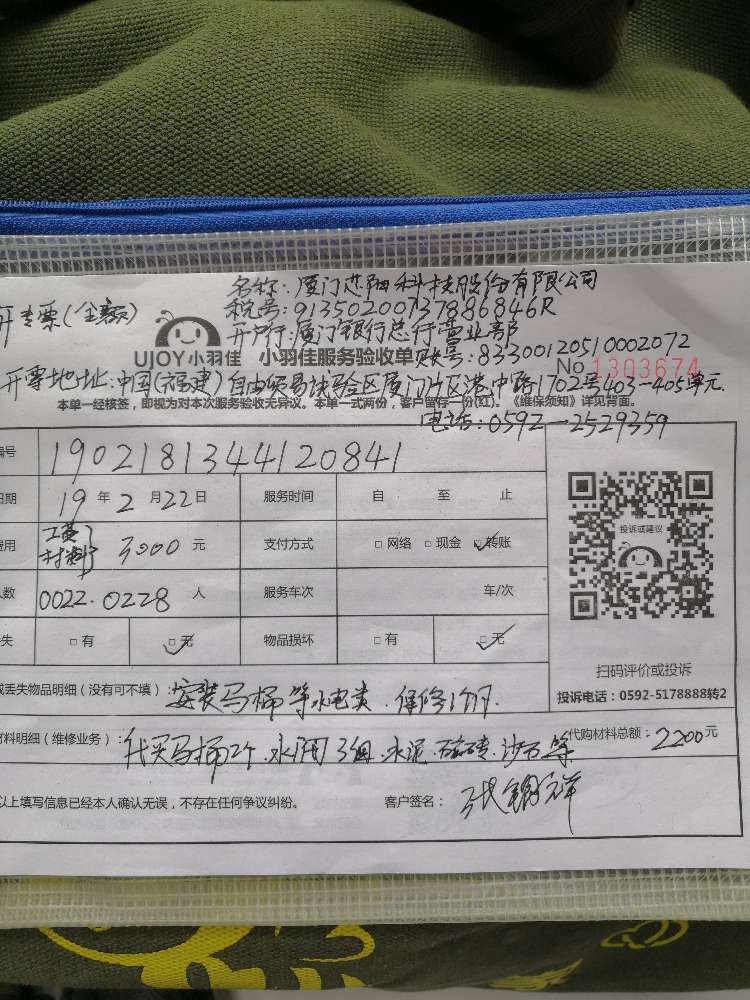 名称：厦门芯阳科技股份有限公司
开专票(全额) 税号：91350200737886846R
开户行：厦门银行总行营业部
UJOY小羽佳 小羽佳服务验收单 账号：83300120510002072
No 1303674
开票地址：中国(福建)自由贸易试验区厦门片区港中路1702号403-405单元.
本单一经核签，即视为对本次服务验收无异议。本单一式两份，客户留存一份(红)。《维保须知》详见背面。
电话：0592-2529359
编号 1902181344120841
日期 19 年 2 月 22 日 服务时间 自 至 止
费用 工费 材料 3000 元 支付方式 □ 网络 □ 现金 □ 转账
人数 0022.0228 人 服务车次 车/次
失 □ 有 □ 无 物品损坏 □ 有 □ 无
投诉或建议
扫码评价或投诉
投诉电话：0592-5178888转2
或丢失物品明细（没有可不填）：安装马桶等水电类.保修1个月.
材料明细（维修业务）：代买马桶2个.水闸3组.水泥.磁砖.沙石等 代购材料总额：2200元
以上填写信息已经本人确认无误，不存在任何争议纠纷。 客户签名：